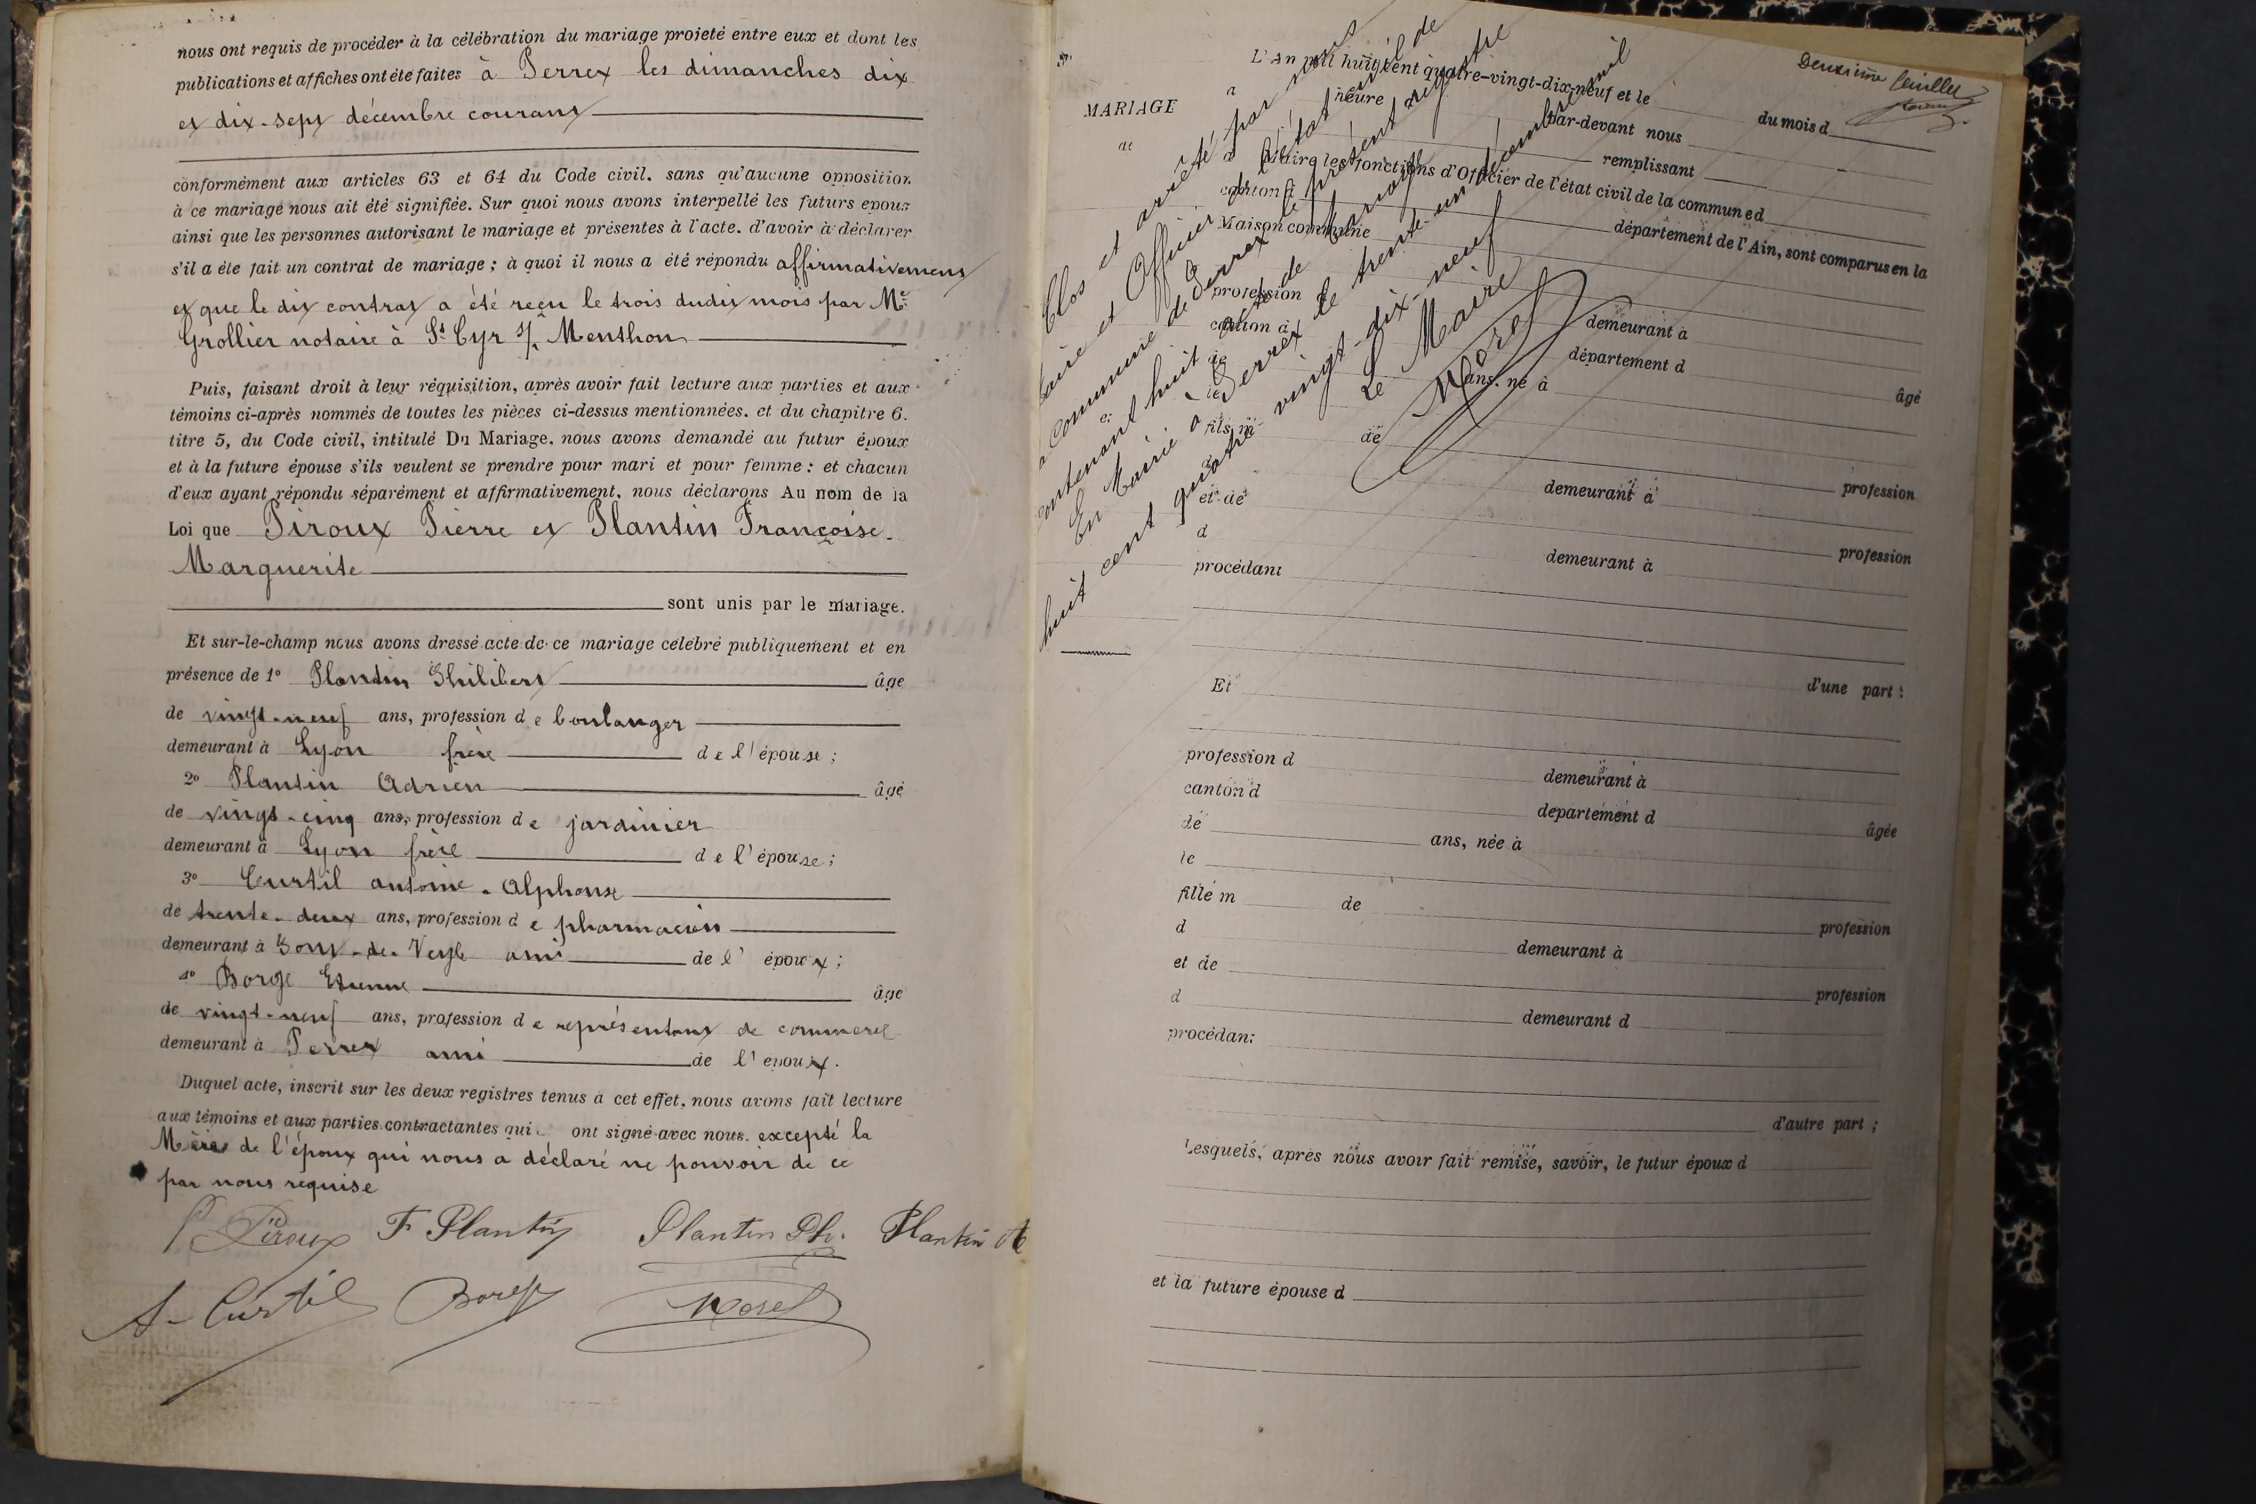 nous ont requis de procéder à la célébration du mariage projeté entre eux et dont les
publications et affiches ont été faites à Perrex les dimanches dix
et dix-sept décembre courant
conformément aux articles 63 et 64 du Code civil, sans qu'aucune opposition
à ce mariage nous ait été signifiée. Sur quoi nous avons interpellé les futurs epoux
ainsi que les personnes autorisant le mariage et présentes à l'acte, d'avoir à déclarer
s'il a été fait un contrat de mariage ; à quoi il nous a été répondu affirmativement
et que le dit contrat a été reçu le trois dudit mois par Me
Grollier notaire à St Cyr s/ Menthon
Puis, faisant droit à leur réquisition, après avoir fait lecture aux parties et aux
témoins ci-après nommés de toutes les pièces ci-dessus mentionnées, et du chapitre 6.
titre 5, du Code civil, intitulé Du Mariage, nous avons demandé au futur époux
et à la future épouse s'ils veulent se prendre pour mari et pour femme : et chacun
d'eux ayant répondu séparément et affirmativement, nous déclarons Au nom de la
Loi que Piroux Pierre et Plantin Françoise-
Marguerite
sont unis par le mariage.
Et sur-le-champ nous avons dressé acte de ce mariage célébré publiquement et en
présence de 1° Plantin Philibert âge
de vingt-neuf ans, profession de boulanger
demeurant à Lyon frère de l'épouse ;
2° Plantin Adrien âgé
de vingt-cinq ans, profession de jardinier
demeurant à Lyon frère de l'épouse ;
3° Curtil antoine-Alphonse
de trente-deux ans, profession de pharmacien
demeurant à Pont-de-Veyle ami de l'époux ;
4° Borge Etienne âge
de vingt-neuf ans, profession de représentant de commerce
demeurant à Perrex ami de l'epoux.
Duquel acte, inscrit sur les deux registres tenus à cet effet, nous avons fait lecture
aux témoins et aux parties contractantes qui ont signé avec nous. excepté la
Mère de l'époux qui nous a déclaré ne pouvoir de ce
par nous requise
P Piroux F Plantin Plantin Ph. Plantin A
A. Curtil Borge Morel
Deuxième feuillet
L'An mil huit cent quatre-vingt-dix-neuf et le du mois d
MARIAGE
à heure Par-devant nous
de
remplissant
à Maire les fonctions d'Officier de l'état civil de la commune d
canton d département de l'Ain, sont comparus en la
Maison commune
profession d demeurant à
canton d département d âgé
de ans, né à
le
fils m de profession
d demeurant à
et de profession
d demeurant à
procédant
d'une part :
Et
profession d demeurant à
canton d département d âgée
de ans, née à
le
fille m de profession
d demeurant à
et de profession
d demeurant d
procédant
d'autre part ;
Lesquels, après nous avoir fait remise, savoir, le futur époux d
et la future épouse d
Clos et arrêté par nous
Maire et Officier de l'état civil de
la commune de Perrex le présent registre
contenant huit actes de mariage
En Mairie à Perrex le trente-un décembre mil
huit cent quatre-vingt-dix-neuf
Le Maire
Morel